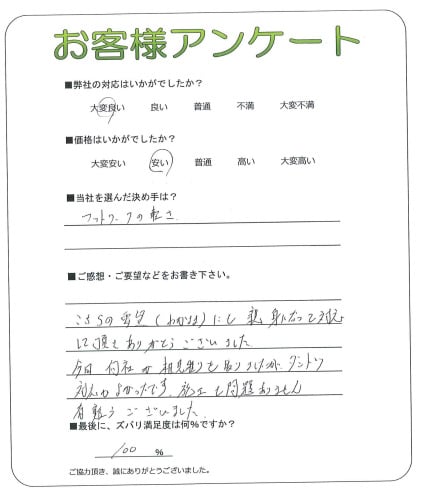 お客様アンケート
■弊社の対応はいかがでしたか？
大変良い 良い 普通 不満 大変不満
■価格はいかがでしたか？
大変安い 安い 普通 高い 大変高い
■当社を選んだ決め手は？
フットワークの軽さ
■ご感想・ご要望などをお書き下さい。
こちらの要望(わがまま)にも親身になって対応
して頂きありがとうございました
今回 何社か相見積りを取りましたが、ダントツ
対応がよかったです。施工も問題ありません
有難うございました
■最後に、ズバリ満足度は何%ですか？
100 %
ご協力頂き、誠にありがとうございました。